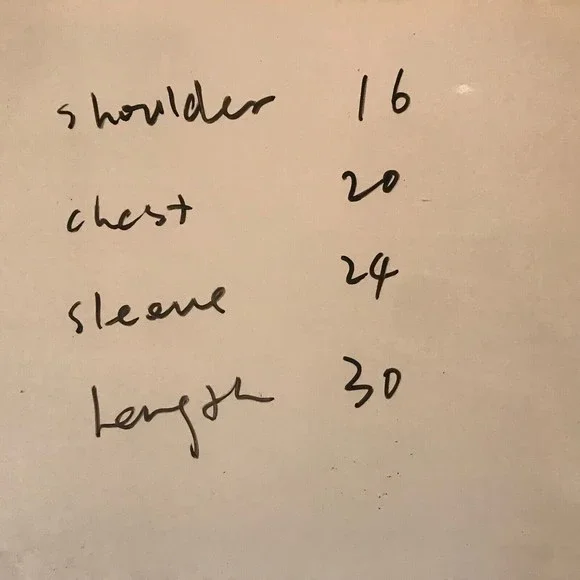 shoulder 16
chest 20
sleeve 24
Length 30